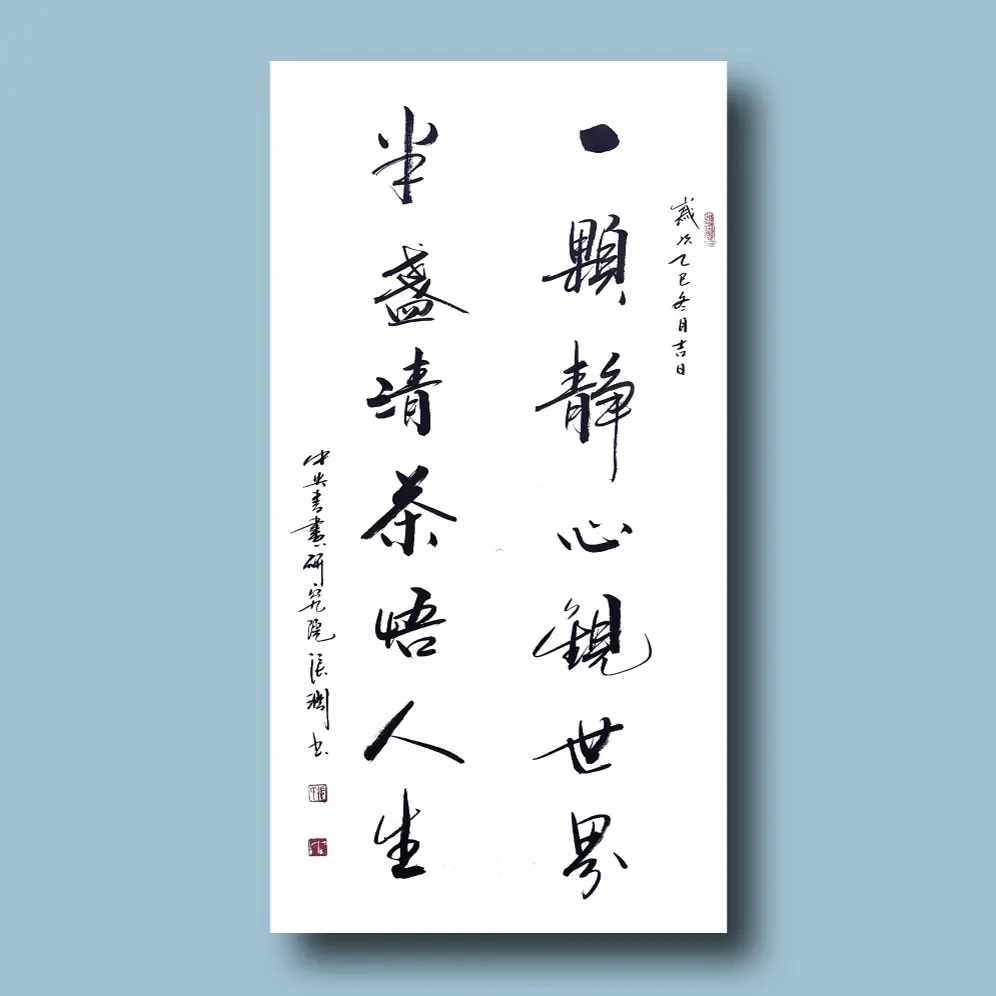 歲次乙巳冬月吉日
一顆静心觀世界
半盏清茶悟人生
中央書畫研究院張
书